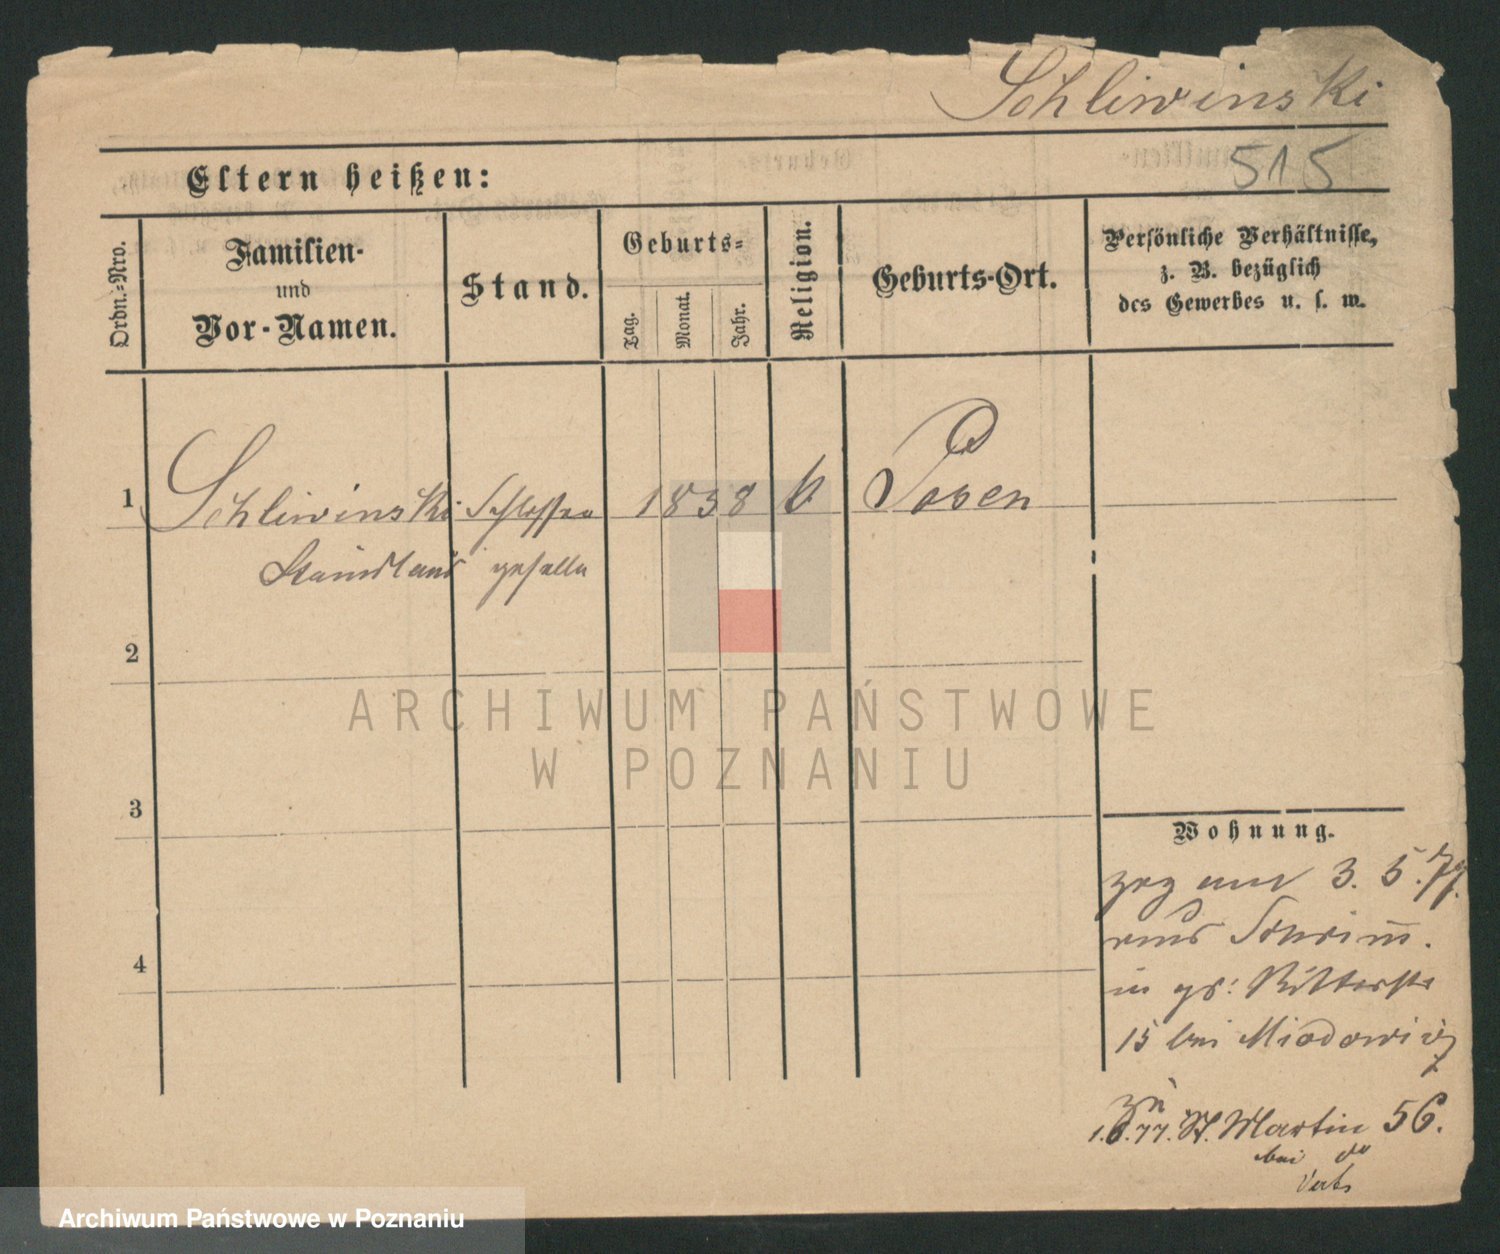 Schliwinski
515
Eltern heißen:
Ordn.-Nro.
Familien-
und
Vor-Namen.
Stand.
Geburts-
Tag.
Monat.
Jahr.
Religion.
Geburts-Ort.
Persönliche Verhältnisse,
z. B. bezüglich
des Gewerbes u. s. w.
1 Schliwinski Schlosser 1838 k. Posen
geselle
2
3
4
ARCHIWUM PAŃSTWOWE
W POZNANIU
Wohnung.
zog am 3. 5. 77.
aus Schrim̄.
in gr: Ritterstr
15 bei Miodowicz
zu
1.6.77. St. Martin 56.
bei
Archiwum Państwowe w Poznaniu